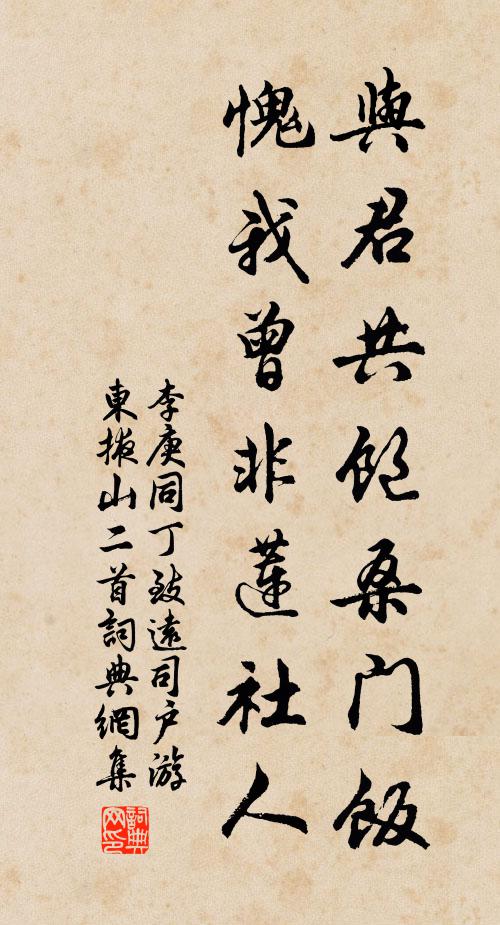 與君共飽桑門飯
愧我曾非蓮社人
李庚同丁致遠司户游
東掖山二首詞典網集
詞典
网印